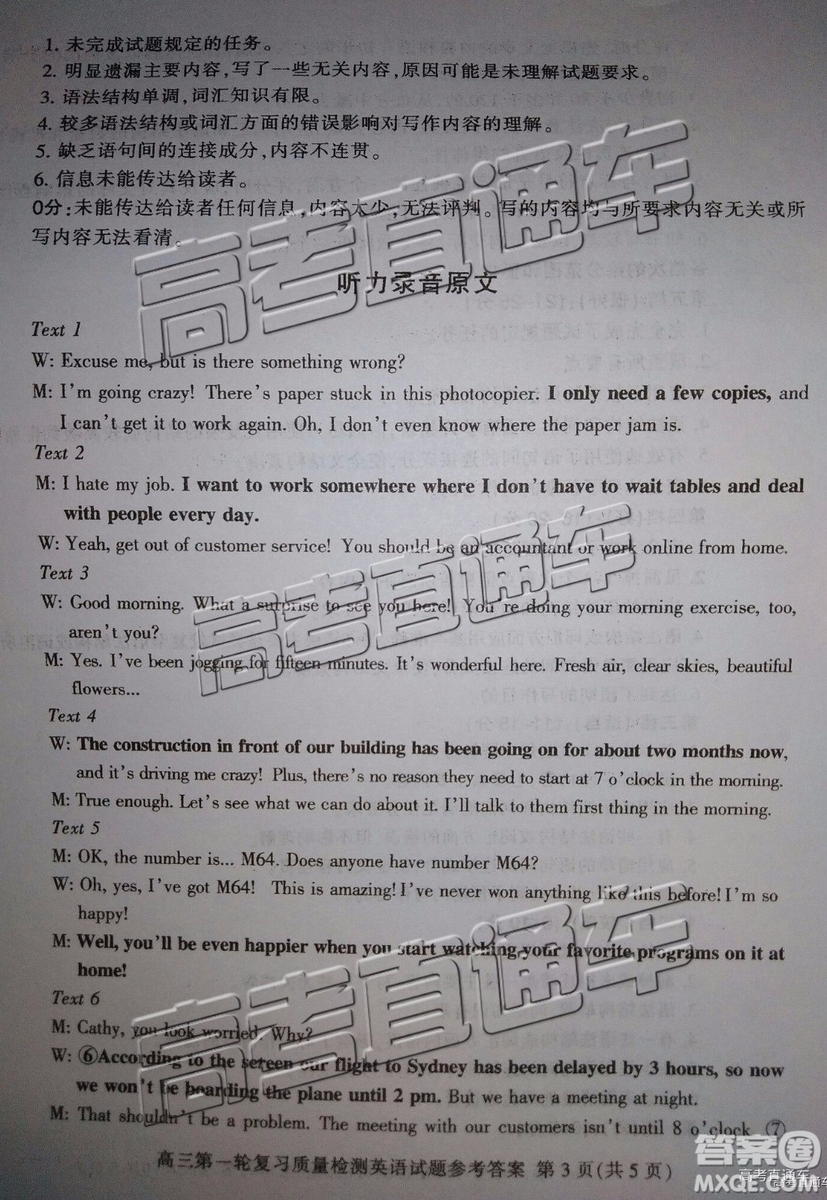 1. 未完成试题规定的任务。
2. 明显遗漏主要内容,写了一些无关内容,原因可能是未理解试题要求。
3. 语法结构单调,词汇知识有限。
4. 较多语法结构或词汇方面的错误影响对写作内容的理解。
5. 缺乏语句间的连接成分,内容不连贯。
6. 信息未能传达给读者。
0分:未能传达给读者任何信息,内容太少,无法评判。写的内容均与所要求内容无关或所
写内容无法看清。
听力录音原文
Text 1
W: Excuse me, but is there something wrong?
M: I'm going crazy! There's paper stuck in this photocopier. I only need a few copies, and
I can't get it to work again. Oh, I don't even know where the paper jam is.
Text 2
M: I hate my job. I want to work somewhere where I don't have to wait tables and deal
with people every day.
W: Yeah, get out of customer service! You should be an accountant or work online from home.
Text 3
W: Good morning. What a surprise to see you here! You're doing your morning exercise, too,
aren't you?
M: Yes. I've been jogging for fifteen minutes. It's wonderful here. Fresh air, clear skies, beautiful
flowers...
Text 4
W: The construction in front of our building has been going on for about two months now,
and it's driving me crazy! Plus, there's no reason they need to start at 7 o'clock in the morning.
M: True enough. Let's see what we can do about it. I'll talk to them first thing in the morning.
Text 5
M: OK, the number is... M64. Does anyone have number M64?
W: Oh, yes, I've got M64! This is amazing! I've never won anything like this before! I'm so
happy!
M: Well, you'll be even happier when you start watching your favorite programs on it at
home!
Text 6
M: Cathy, you look worried. Why?
W: ⑥According to the screen our flight to Sydney has been delayed by 3 hours, so now
we won't be boarding the plane until 2 pm. But we have a meeting at night.
M: That shouldn't be a problem. The meeting with our customers isn't until 8 o'clock. ⑦
高三第一轮复习质量检测英语试题参考答案 第3页(共5页)
高考直通车
高考直通车
高考直通车
答案圈
MXQE.COM
高考直通车